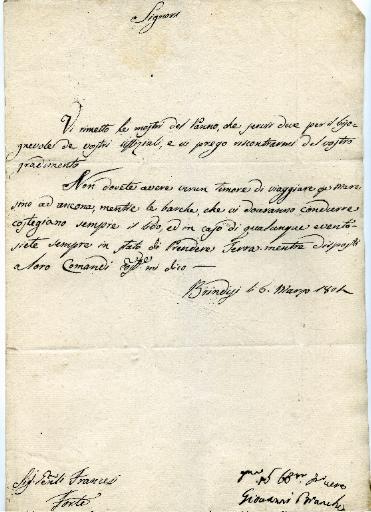 Signori
Vi rimetto le mostre del Panno, che servir deve per il biso-
gnevole de vostri uffiziali, e vi prego riscontrarmi del vostro
gradimento
Non dovete avere verun timore di viaggiare per mare
sino ad ancona, mentre le barche, che vi dovranno condurre
costegiano sempre il lido, ed in caso di qualunque evento
siete sempre in stato di prendere Terra. mentre disposto
a loro Comandi mi dico —
Brindisi li 6. Marzo 1801
Francesi
Forte
Giovanni